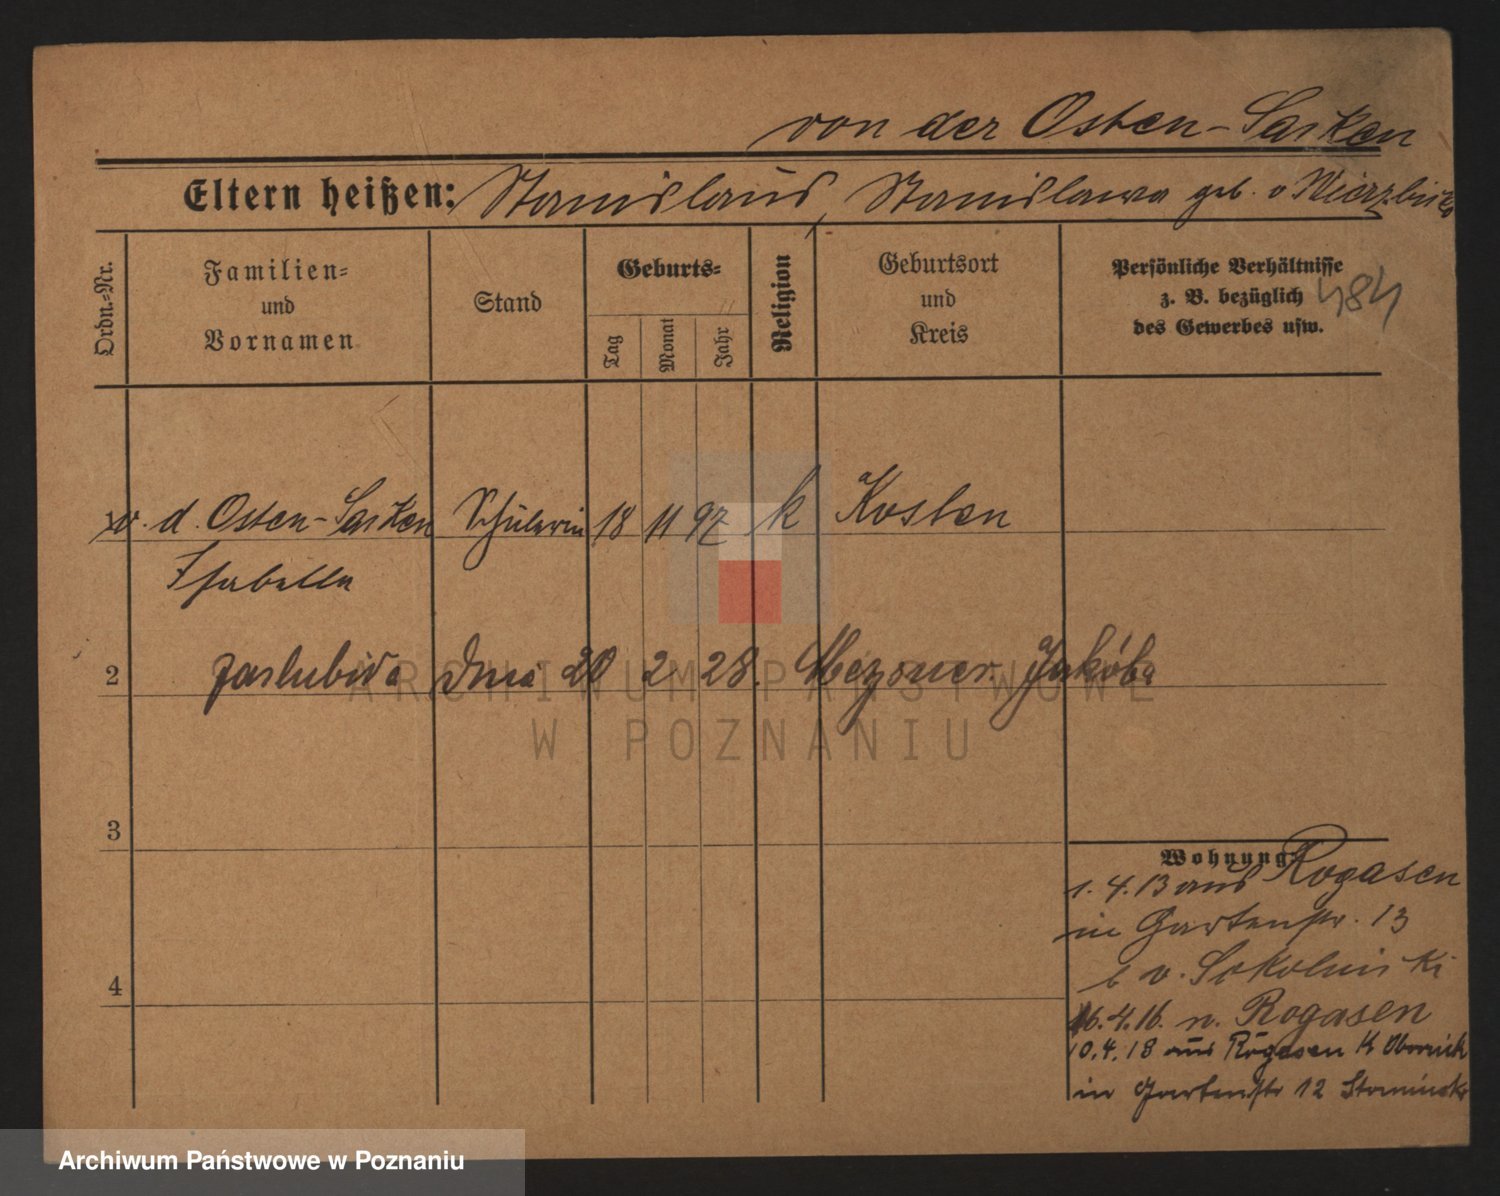 von der Osten-Sacken
Eltern heißen: Stanislaus, Stanislawa geb. v
Ordn.=Nr.
Familien=
und
Vornamen
Stand
Geburts=
Tag
Monat
Jahr
Religion
Geburtsort
und
Kreis
Persönliche Verhältnisse
z. B. bezüglich
des Gewerbes usw.
484
v. d. Osten-Sacken Schülerin 18 11 97 k Kosten
Isabella
2 zaślubiła dnia 20 2 28. Jakóba
3
Wohnung:
1.4.13 aus Rogasen
in Gartenstr. 13
b v. Sokolnicki
4
16.4.16. n. Rogasen
10.4.18 aus Rogasen K Obornick
in Gartenstr 12
ARCHIWUM PAŃSTWOWE
W POZNANIU
Archiwum Państwowe w Poznaniu